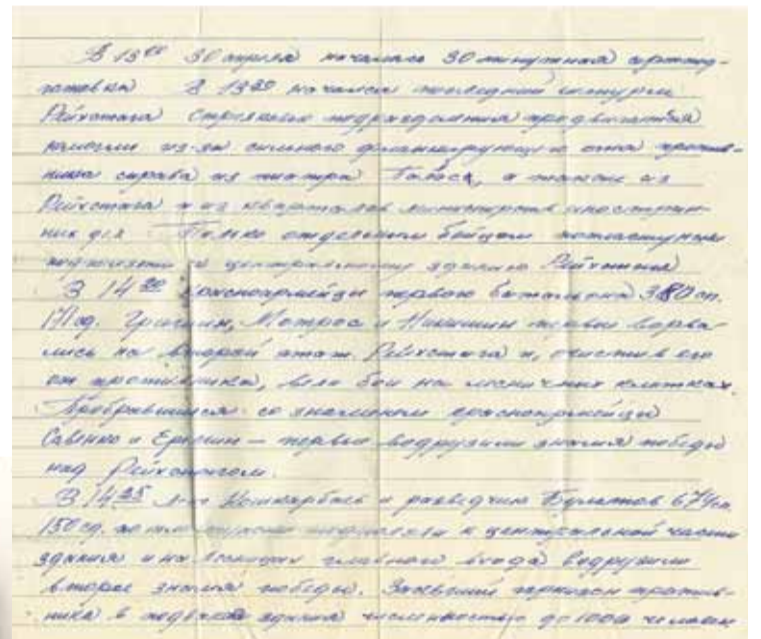 В 13⁰⁰ 30 апреля началась 30 минутная артпод-
готовка В 13³⁰ начался последний штурм
Рейхстага Стрелковые подразделения продвигаться
не могли из-за сильного фланкирующего огня против-
ника справа из театра а также из
Рейхстага и из кварталов министерств иностран-
ных дел Только отдельным бойцам
к центральному зданию Рейхстага
В 14²⁰ красноармейцы первого батальона 380 сп.
171 сд. Грибин, Матрос и Никитин первые ворва-
лись на второй этаж Рейхстага и, очистив его
от противника, вели бои на лесничных клетках.
Пробравшиеся со знаменем красноармейцы
Савенко и Еремин – первые водрузили знамя победы
над Рейхстагом.
В 14²⁵ л-т Кошкарбаев и разведчик Булатов 674 сп
150 сд. к центральной части
здания и на лестнице главного входа водрузили
второе знамя победы. Засевший гарнизон против-
ника в подвалах здания численностью до 1000 человек